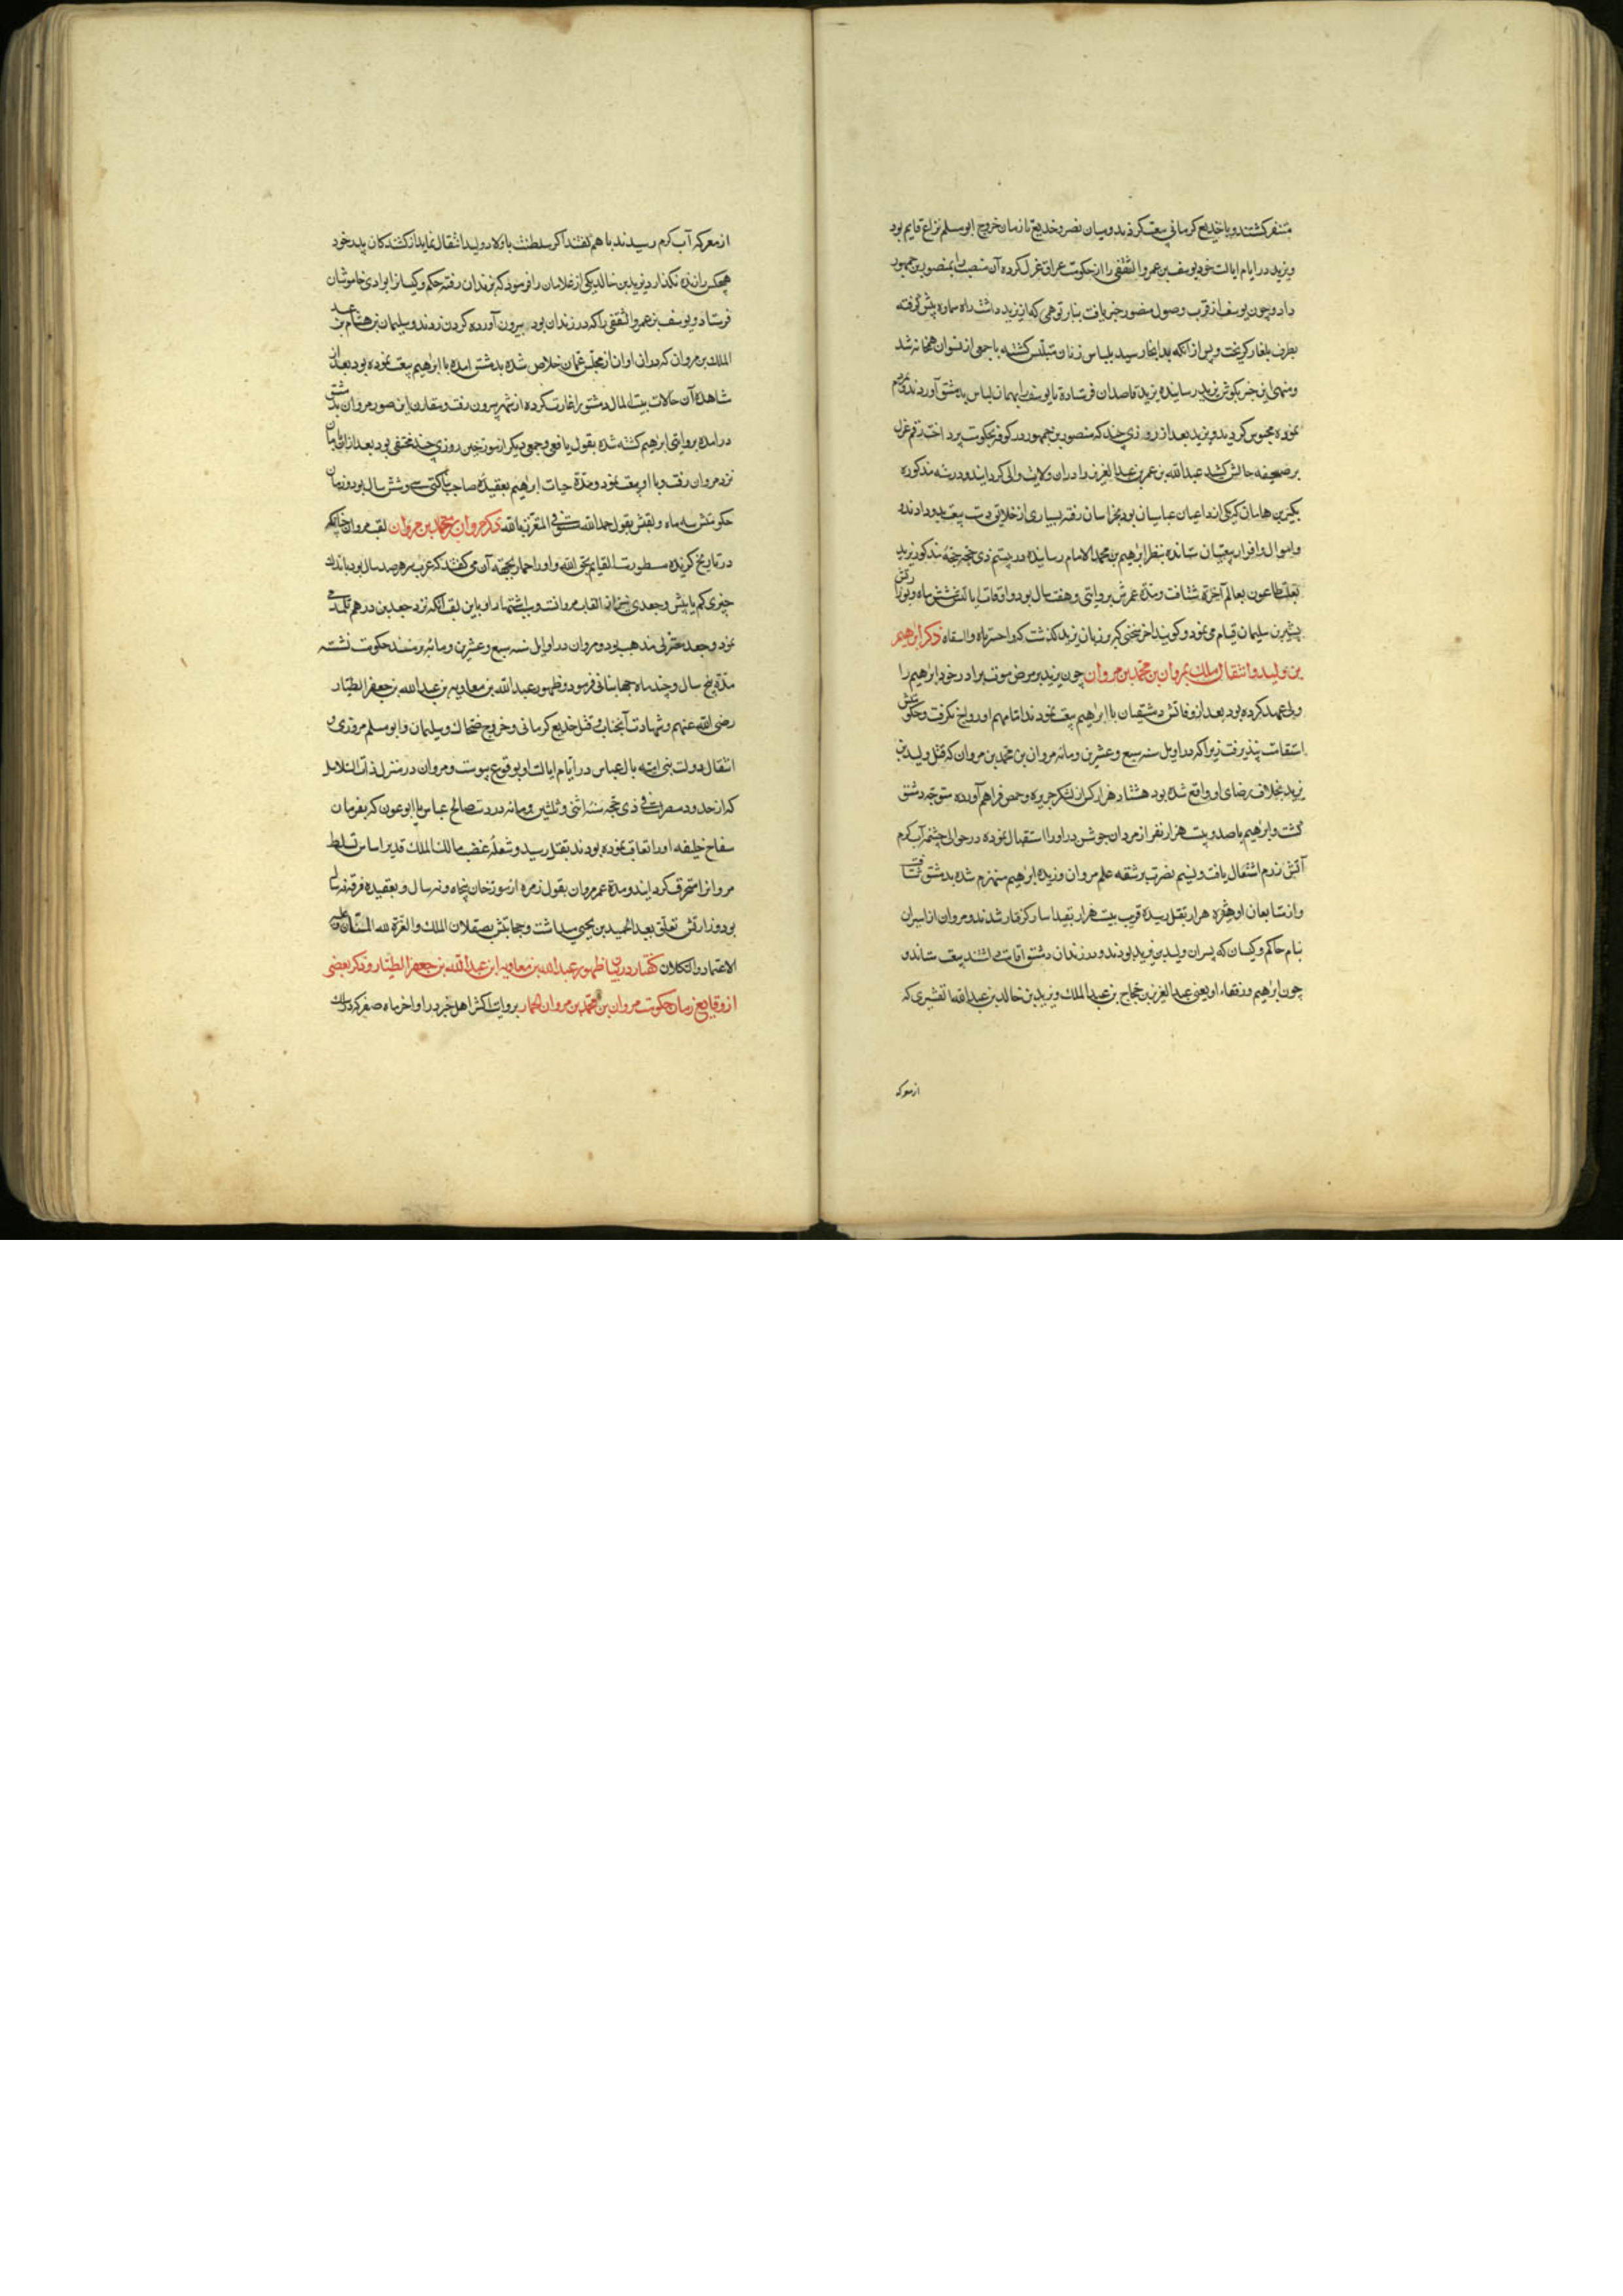 متنفر گشتند و با خدیع کرمانی بیعت کردند و میان نصر و خدیع تا زمان خروج ابو مسلم نزاع قایم بود
و یزید در ایام ایالت خود یوسف بن عمرو الثقفی را از حکومت عراق عزل کرده آن منصب را بمنصور بن جمهور
داد و چون یوسف از قرب وصول منصور خبر یافت بنابر توهمی که از یزید داشت راه سماوه پیش گرفته
بطرف بلغار گریخت و پس از آنکه بدانجا رسید بلباس زنان متلبس گشته با جمعی از نسوان همخانه شد
و منهی این خبر بگوش یزید رسانیده یزید قاصدان فرستاد تا یوسف را بهمان لباس بدمشق آوردند و
نموده محبوس گردید و یزید بعد از روزی چند که منصور بن جمهور در کوفه بحکومت پرداخت رقم عزل
بر صحیفه حالش کشید عبدالله بن عمر بن عبدالعزیز را در آن ولایت والی گردانید و در سنه مذکوره
بکیر بن هامان که یکی از داعیان عباسیان بود بخراسان رفته بسیاری از خلایق دست بیعت بدو دادند و
و اموال وافر از بیعتیان ستانده بنظر ابرهیم بن محمد الامام رسانیده در بیستم ذی حجه حجه مذکور یزید
بعلت طاعون بعالم آخرت شتافت و مدت عمرش بروایتی سی و هفت سال بود و اوقات ایالتش شش ماه و بوزارتش
بشیر بن سلیمان قیام می نمود و گویند آخر سخنی که بر زبان یزید گذشت که واحسرتاه وا اسفاه ذکر ابرهیم
بن ولید و انتقال ملک بمروان بن محمد بن مروان چون یزید بر مرض موت برادر خود ابرهیم را
ولی عهد کرده بود بعد از وفاتش دمشقیان با ابرهیم بیعت نمودند اما مهم او رواج نگرفت و حکومتش
استقامت نپذیرفت زیرا که در اوایل سنه سبع و عشرین و مائه مروان بن محمد بن مروان که قتل ولید بن
یزید بخلاف رضای او واقع شده بود هشتاد هزار کس از لشکر جزیره و حمص فراهم آورده متوجه دمشق
گشت و ابرهیم با صد و بیست هزار نفر از مردان جوشن در او را استقبال نموده در حوالی چشمه آب گرم
آتش رزم اشتعال یافت و نسیم نصرت بر شقه علم مروان وزیده ابرهیم منهزم شده بدمشق شتافت
و از متابعان او هژده هزار بقتل رسیده قریب بیست هزار بقید اسار گرفتار شدند و مروان از اسیران
بنام حاکم و کسان که پسران ولید بن یزید بودند و در زندان دمشق اقامت داشتند بیعت ستاند و
چون ابرهیم و رفقاء او یعنی عبدالعزیز بن حجاج بن عبدالملک و یزید بن خالد بن عبدالله القشیری که
از معرکه
از معرکه آب گرم رسیدند با هم گفتند اگر سلطنت باولاد ولید انتقال نماید از کشندکان پدر خود
هیچکس را زنده نگذارد یزید بن خالد یکی از غلامان را فرمود که بزندان رفته حکم و کسان را بوادی خاموشان
فرستاد و یوسف بن عمرو الثقفی را که در زندان بود بیرون آورده گردن زدند و سلیمان بن هشام بن عبد
الملک بن مروان که در آن اوان از مجلس عمان خلاص شده بدمشق آمده با ابرهیم بیعت نموده بود بعد از
مشاهده آن حالات بیت المال دمشق را غارت کرده از شهر بیرون رفت و مقارن این صور مروان بدمشق
درآمده بروایتی ابرهیم کشته شده بقول یافعی و جمعی دیگر از مورخین روزی چند مختفی بود بعد از آن بامان
نزد مروان رفت و با او بیعت نمود و مدة حیات ابرهیم بعقیدۀ صاحب سی و شش سال بود و زمان
حکومتش سه ماه و لقبش بقول حمدالله مستوفی المتعزز بالله ذکر مروان بن محمد بن مروان لقب مروان چنانکه
در تاریخ گزیده مسطورست القایم بحق الله و او را حمار بجهت آن می گفتند که عرب سر هر صد سال بود باندک
چیزی کم یا بیش و جعدی نیز از القاب مروانست و باشتهار او باین لقب آنکه نزد جعد بن درهم تلمذ می
نمود و جعد معتزلی مذهب بود و مروان در اوایل سنه سبع و عشرین و مائه بر مسند حکومت نشسته
مدة پنج سال و چند ماه جهانبانی فرمود و ظهور عبدالله بن معاویه بن عبدالله بن جعفر الطیار
رضی الله عنهم و شهادت آنجناب و قتل خدیع کرمانی و خروج ضحاک و سلیمان و ابو مسلم مروزی و
انتقال دولت بنی امیه بآل عباس در ایام ایالت او بوقوع پیوست و مروان در منزل ذات السلاسل
که از حدود مصرست فی ذی حجه سنه اثنی و ثلثین و مائه در دست صالح عباس یا ابو عون که بفرمان
سفاح خلیفه او را تعاقب نموده بودند بقتل رسید و شعلۀ غضب مالک الملک قدیر اساس تسلط
مروان را محترق گردانید و مدة عمر مروان بقول زمره از مورخان پنجاه و نه سال و بعقیده فرقه
بود و وزارتش تعلق بعبد الحمید بن یحیی میداشت و حجابتش بصقلان الملک والعزة لله المستعان علیه
الاعتماد و التکلان گفتار در بیان ظهور عبدالله بن معاویه ابن عبدالله بن جعفر الطیار و ذکر بعضی
از وقایع زمان حکومت مروان بن محمد بن مروان الحمار بروایت اکثر اهل خبر در اواخر ماه صفر که در سال